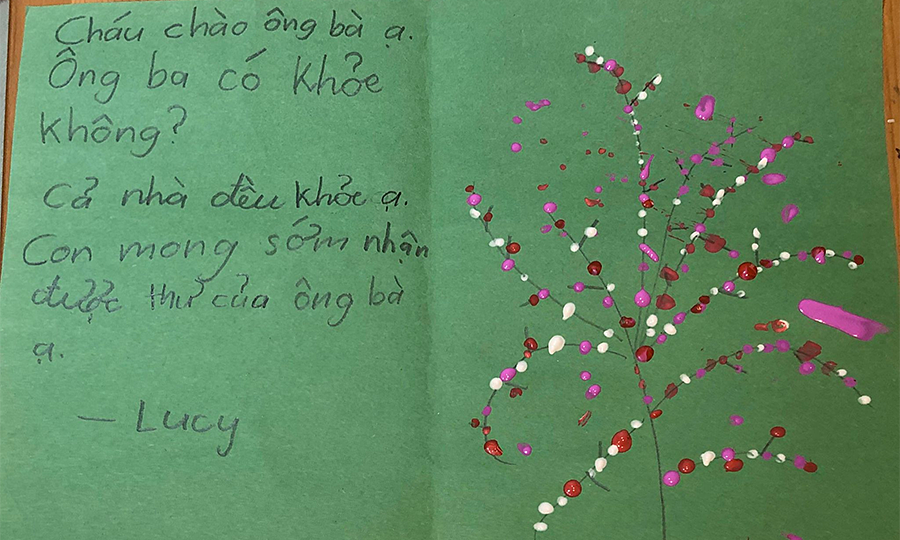 Cháu chào ông bà ạ.
Ông ba có khỏe
không?
Cả nhà đều khỏe ạ.
Con mong sớm nhận
được thư của ông bà
ạ.
— Lucy